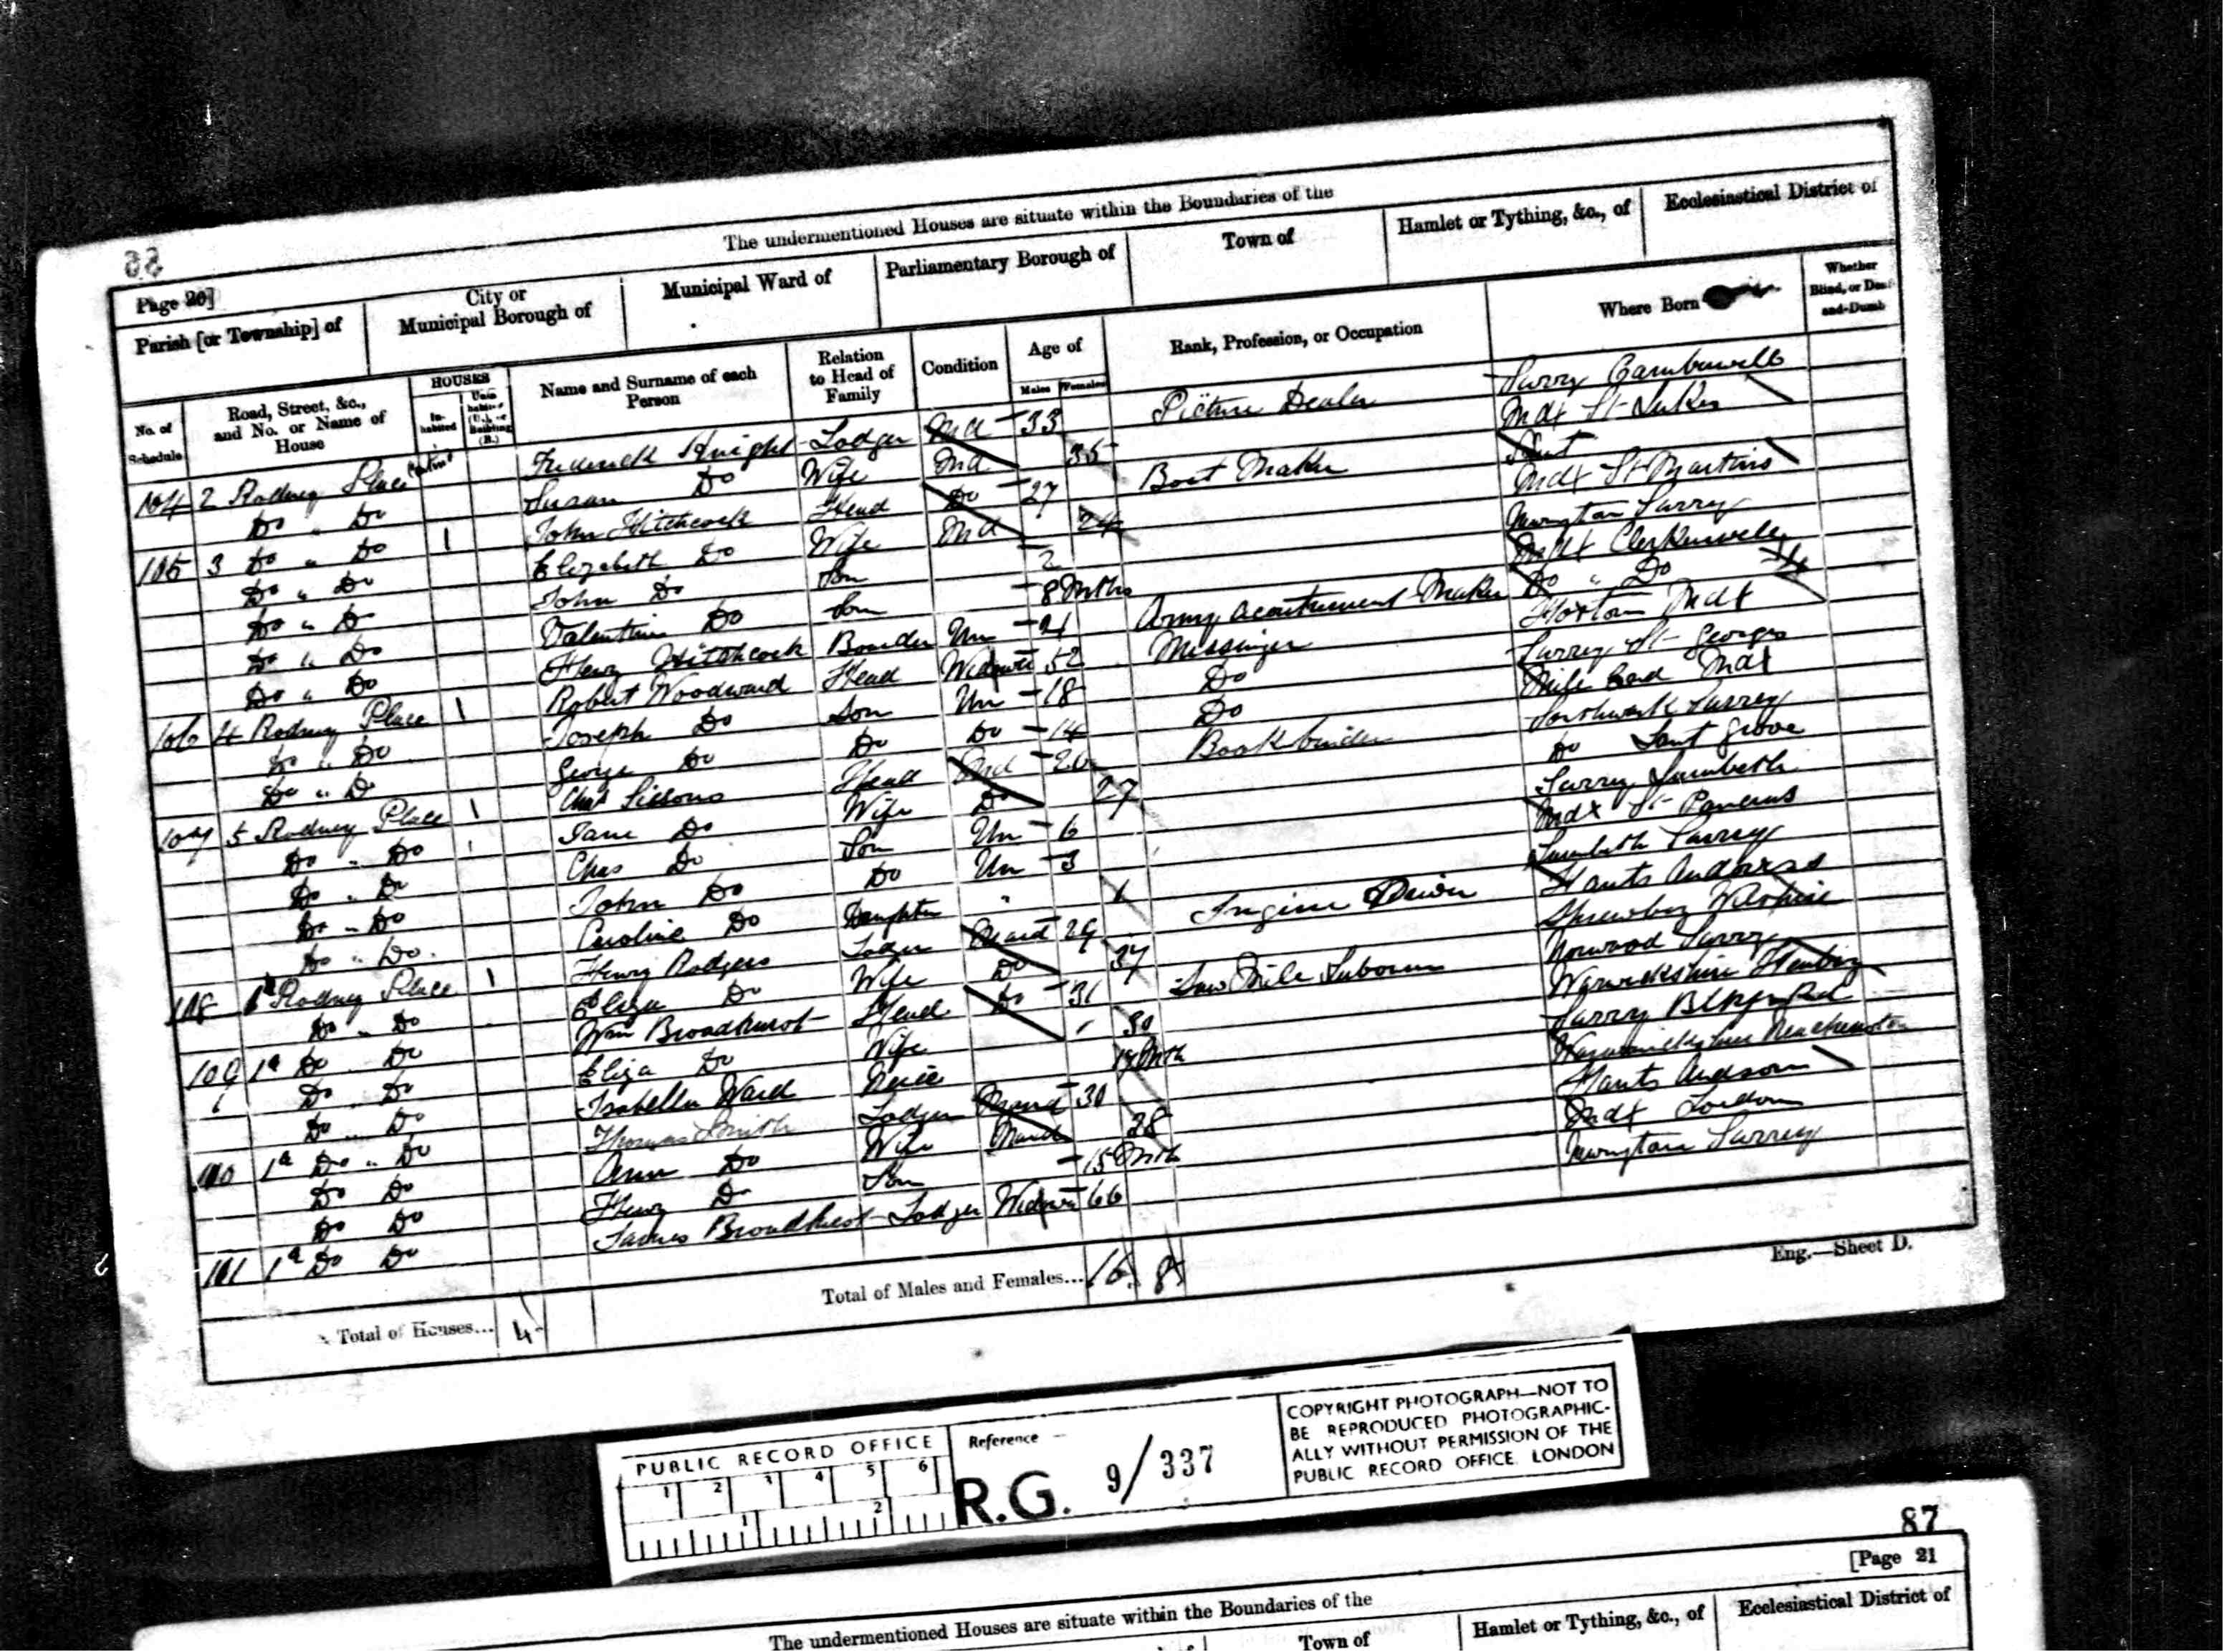 The undermentioned Houses are situate within the Boundaries of the
Page 20]
Parish [or Township] of
City or Municipal Borough of
Municipal Ward of
Parliamentary Borough of
Town of
Hamlet or Tything, &c., of
Ecclesiastical District of
No. of Schedule
Road, Street, &c., and No. or Name of House
HOUSES
In-habited
Name and Surname of each Person
Relation to Head of Family
Condition
Age of
Males Females
Rank, Profession, or Occupation
Where Born
Whether Blind, or Deaf-and-Dumb
104 2 Rodney Place Frederick Knight Lodger Md 33 Picture Dealer Surry Camberwell
Do " Do Susan Do Wife Md 35 Mdx St Lukes
105 3 Do " Do 1 John Hitchcock Head Do 27 Boot Maker Kent
Do " Do Elizabeth Do Wife Md 24 Mdx St Martins
Do " Do John Do Son 2 Newington Surrey
Do " Do Valentine Do Son 8 Mths Mdx Clerkenwell
Do " Do Henry Hitchcock Boarder Un 21 Army Acoutrement Maker Do " Do
106 4 Rodney Place 1 Robert Woodward Head Widower 52 Messinger Hoxton Mdx
Do " Do Joseph Do Son Un 18 Do Surrey St Georges
Do " Do George Do Do Do 14 Do Mile End Mdx
107 5 Rodney Place 1 Chas Sissons Head Md 26 Bookbinder Southwark Surrey
Do " Do Jane Do Wife Do 27 Do Grove
Do " Do Chas Do Son Un 6 Surrey Lambeth
Do " Do John Do Do Un 3 Mdx St Pancras
Do " Do Caroline Do Daughter " 1 Lambeth Surrey
108 Rodney Place 1 Henry Rodgers Lodger Mard 29 Ingine Driver Hants
Do " Do Eliza Do Wife Do 37
109 1a Do " Do Wm Broadhurst Head Do 31 Saw Mile Labourer Norwood Surrey
Do " Do Eliza Do Wife 30 Warwickshire
Do " Do Isabella Ward Neice Mth Surrey
110 1a Do " Do Thomas Smith Lodger Mard 30
Do Do Ann Do Wife Mard 28 Hants
Do Do Henry Do Son 15 Mth Mdx London
101 1a Do Do James Broadhurst Lodger Widower 66 Newington Surrey
Total of Houses... 4
Total of Males and Females... 16 8
Eng.—Sheet D.
PUBLIC RECORD OFFICE
1 2 3 4 5 6
1 2
Reference
R.G. 9/337
COPYRIGHT PHOTOGRAPH—NOT TO
BE REPRODUCED PHOTOGRAPHIC-
ALLY WITHOUT PERMISSION OF THE
PUBLIC RECORD OFFICE. LONDON
87
[Page 21
The undermentioned Houses are situate within the Boundaries of the
Town of
Hamlet or Tything, &c., of
Ecclesiastical District of